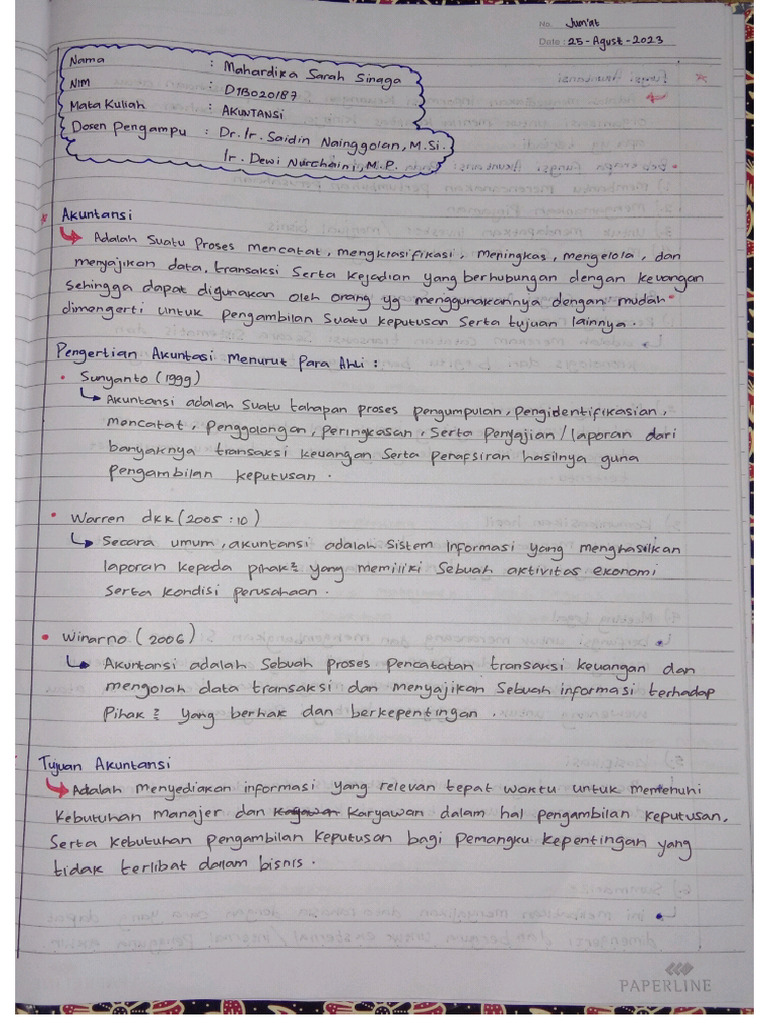 No. Jum'at
Date: 25-Agust-2023
Nama : Mahardika Sarah Sinaga
NIM : D1B020187
Mata Kuliah : AKUNTANSI
Dosen Pengampu : Dr. Ir. Saidin Nainggolan, M.Si.
Ir. Dewi Nurchaini, M.P.
Akuntansi
Adalah Suatu Proses mencatat, mengklasifikasi, meningkas, mengelola, dan
menyajikan data, transaksi Serta Kejadian yang berhubungan dengan keuangan
sehingga dapat digunakan oleh orang yg menggunakannya dengan mudah
dimengerti untuk pengambilan Suatu keputusan Serta tujuan lainnya.
Pengertian Akuntasi Menurut Para Ahli :
• Sunyanto (1999)
Akuntansi adalah Suatu tahapan proses pengumpulan, Pengidentifikasian,
mencatat, Penggolongan, Peringkasan, Serta Penyajian/laporan dari
banyaknya transaksi keuangan Serta penafsiran hasilnya guna
pengambilan keputusan.
• Warren dkk (2005 : 10)
Secara umum, akuntansi adalah Sistem Informasi yang menghasilkan
laporan kepada pihak² yang memiliki Sebuah aktivitas ekonomi
Serta kondisi perusahaan.
• Winarno (2006)
Akuntansi adalah Sebuah Proses Pencatatan transaksi keuangan dan
mengolah data transaksi dan Menyajikan Sebuah informasi terhadap
Pihak² yang berhak dan berkepentingan.
Tujuan Akuntansi
Adalah menyediakan informasi yang relevan tepat waktu untuk memenuhi
Kebutuhan manajer dan Karyawan dalam hal pengambilan keputusan,
Serta kebutuhan pengambilan Keputusan bagi Pemangku kepentingan yang
tidak terlibat dalam bisnis.
PAPERLINE